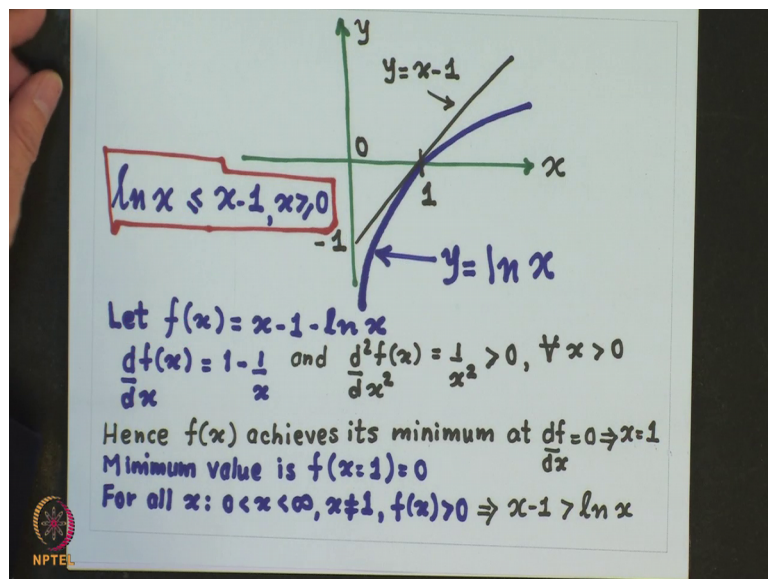 y
y=x-1
0
x
1
ln x ≤ x-1, x≥0
-1
y= ln x
Let f(x) = x-1-ln x
df(x)/dx = 1-1/x and d²f(x)/dx² = 1/x² >0, ∀ x > 0
Hence f(x) achieves its minimum at df/dx =0⇒x=1
Minimum value is f(x=1)=0
For all x: 0<x<∞, x≠1, f(x)>0 ⇒ x-1 > ln x
NPTEL